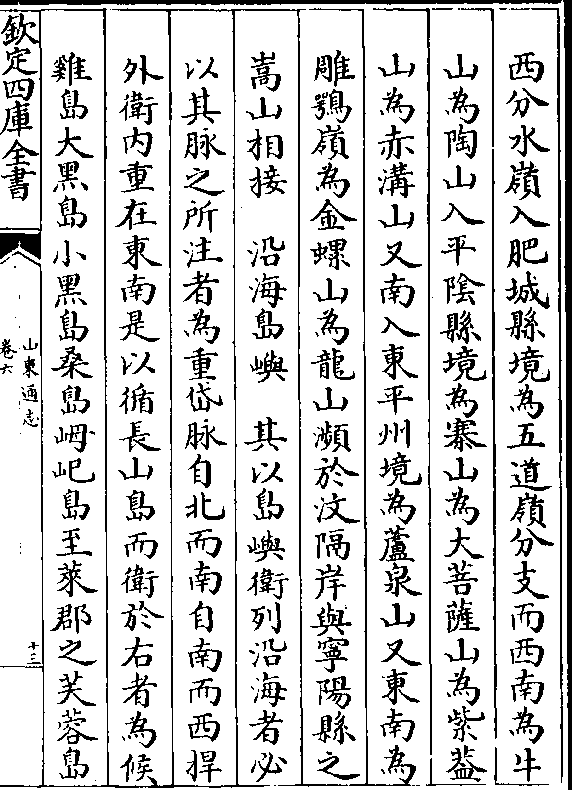 西分水嶺入肥城縣境為五道嶺分支而西南為牛
山為陶山入平陰縣境為寨山為大菩薩山為紫葢
山為赤溝山又南入東平州境為蘆泉山又東南為
雕鶚嶺為金螺山為龍山瀕於汶隔岸與寧陽縣之
嵩山相接　沿海島嶼　其以島嶼衛列沿海者必
以其脉之所注者為重岱脉自北而南自南而西捍
外衛内重在東南是以循長山島而衛於右者為候
雞島大黑島小黑島桑島㟂屺島至萊郡之芙蓉島
欽定四庫全書
山東通志
卷六
十三